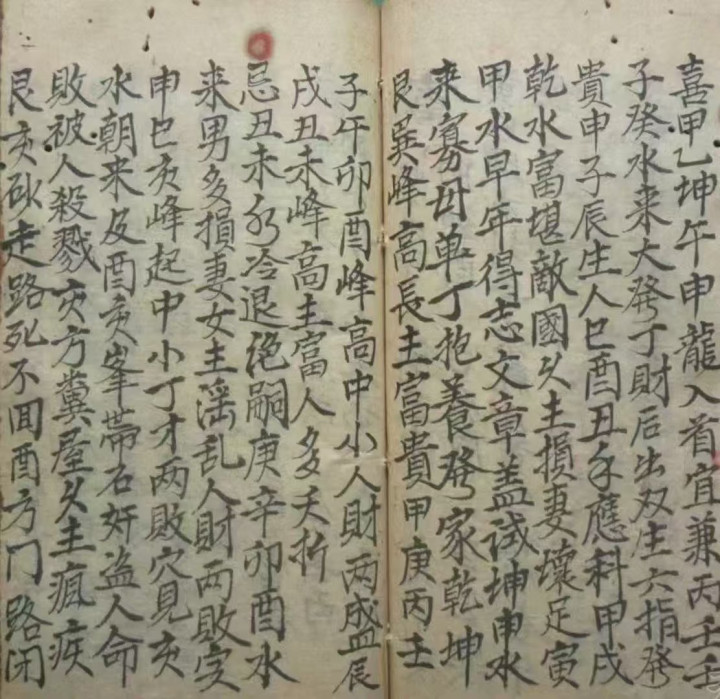 喜甲乙坤午申龍入首宜兼丙壬壬
子癸水来大發丁財后出双生六指發
貴申子辰生人巳酉丑年應科甲戌
乾水富堪敵國久主損妻壞足寅
甲水早年得志文章盖试坤申水
来寡母单丁抱養發家乾坤
艮巽峰高長主富貴甲庚丙壬
子午卯酉峰高中小人財两盛辰
戌丑未峰高主富人多夭折
忌丑未水冷退绝嗣庚辛卯酉水
来男多損妻女主滛乱人財两敗寅
申巳亥峰起中小丁才两敗穴見亥
水朝来及酉亥峯帶石奸盗人命
敗被人殺戮亥方糞屋久主瘋疾
艮亥砂走路死不囬酉方門路闭